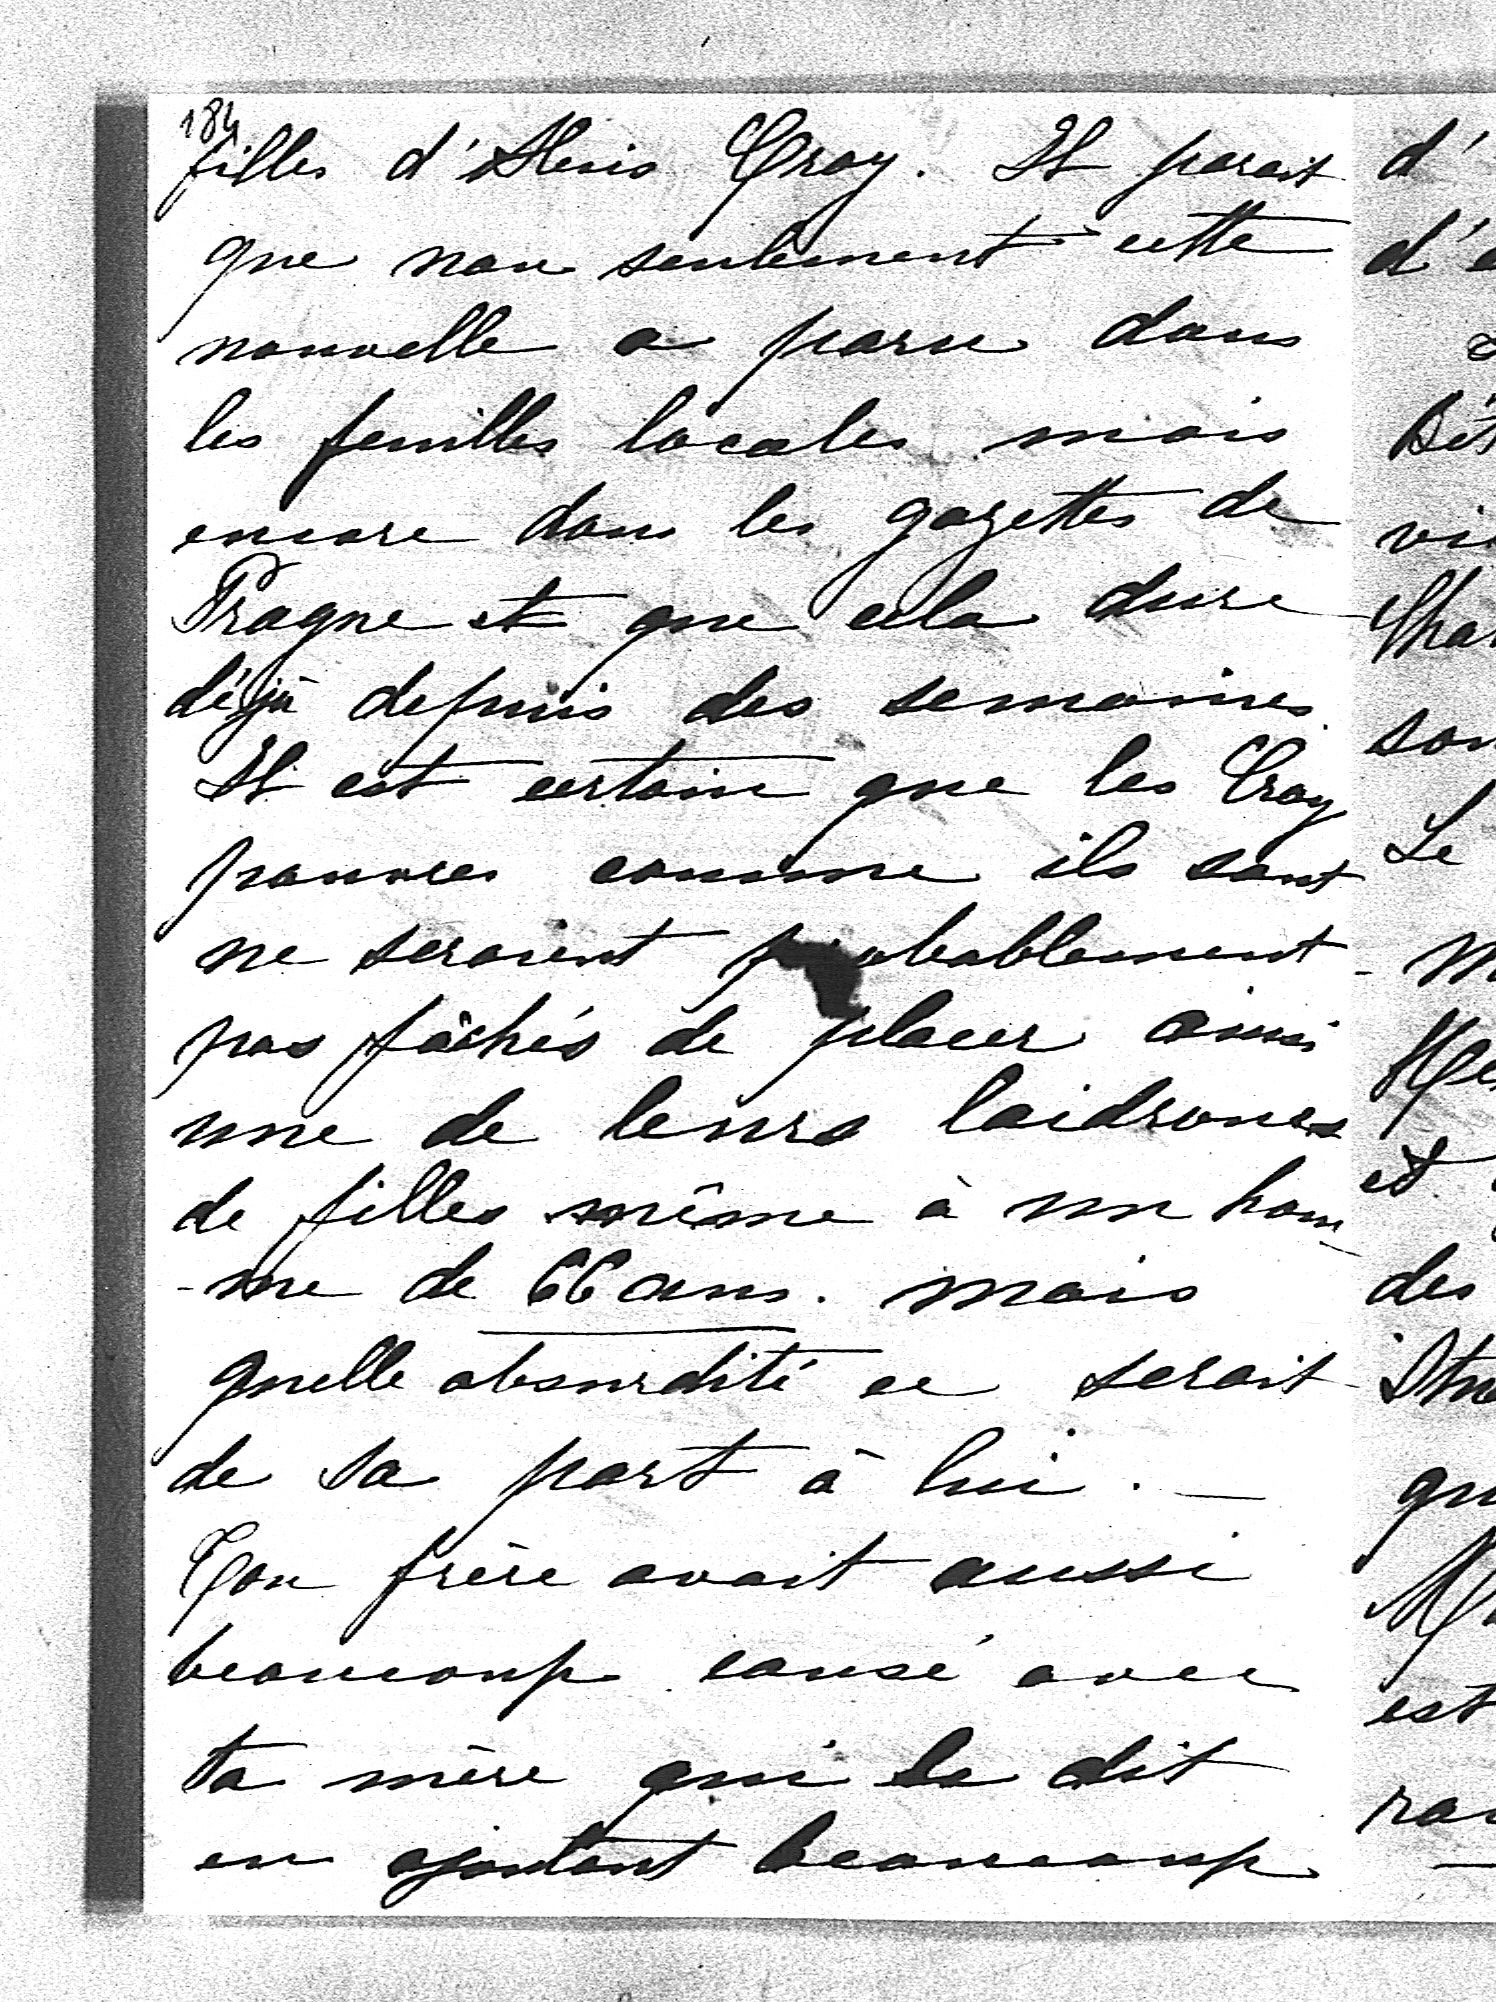 184
filles d'Alexis Croy. Il parait
que non seulement cette
nouvelle a paru dans
les feuilles locales mais
encore dans les gazettes de
Prague et que cela dure
déjà depuis des semaines.
Il est certain que les Croy
pauvres comme ils sont
ne seraient probablement
pas fâchés de placer ainsi
une de leurs laidrones
de filles même à un hom-
-me de 66 ans. mais
quelle absurdité ce serait
de sa part à lui. —
Ton frère avait aussi
beaucoup causé avec
ta mère qui le dit
en ajoutant beaucoup